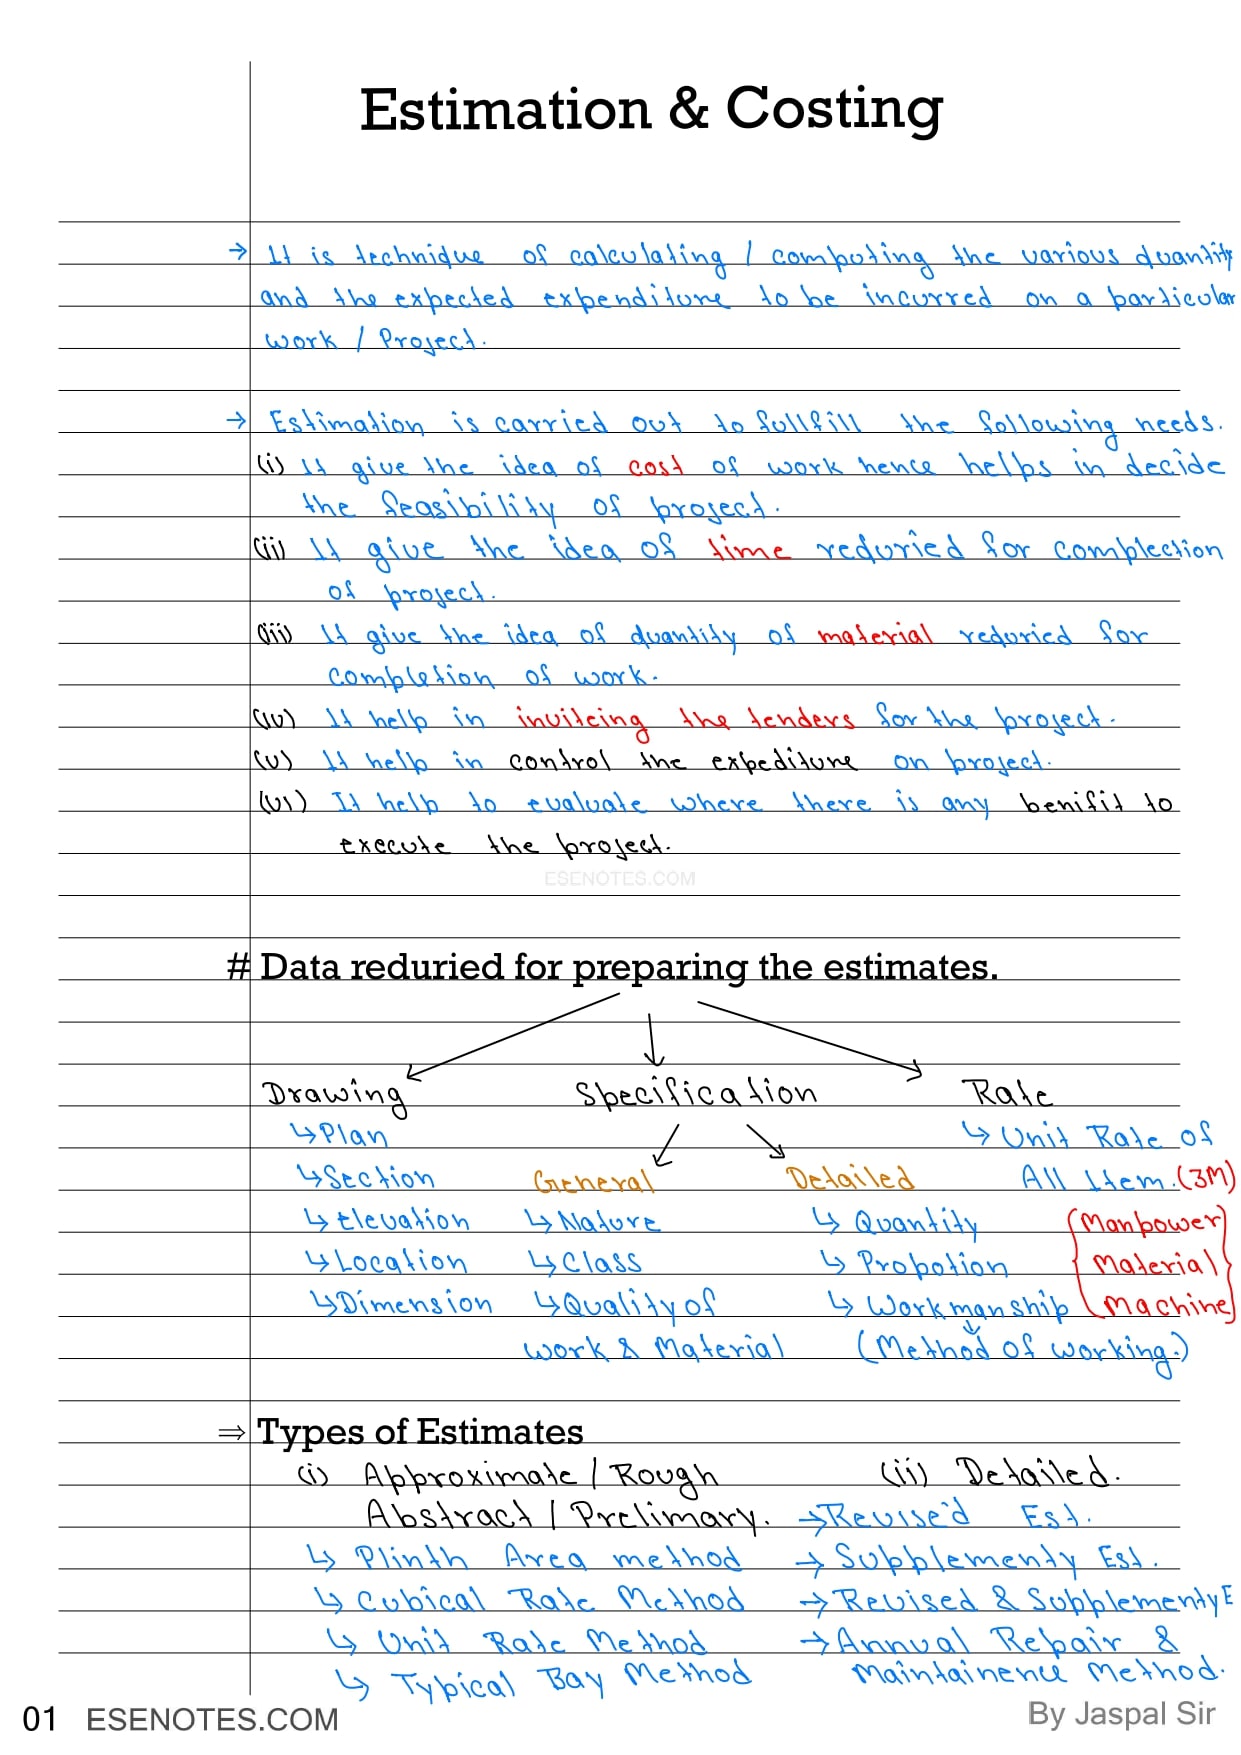 Estimation & Costing
→ It is technique of calculating / computing the various quantity
and the expected expenditure to be incurred on a particular
work / Project.
→ Estimation is carried out to fullfill the following needs.
(i) It give the idea of cost of work hence helps in decide
the feasibility of project.
(ii) It give the idea of time reduried for complection
of project.
(iii) It give the idea of quantity of material reduried for
completion of work.
(iv) It help in inviteing the tenders for the project.
(v) It help in control the expediture on project.
(vi) It help to evaluate where there is any benifit to
execute the project.
ESENOTES.COM
# Data reduried for preparing the estimates.
Drawing Specification Rate
↳ Plan ↳ Unit Rate of
↳ Section General Detailed All Item. (3M)
↳ Elevation ↳ Nature ↳ Quantity (Manpower)
↳ Location ↳ Class ↳ Propotion Material
↳ Dimension ↳ Quality of ↳ Workmanship Machine
work & Material (Method of working.)
⇒ Types of Estimates
(i) Approximate / Rough (ii) Detailed.
Abstract / Prelimary. → Revise'd Est.
↳ Plinth Area method → Supplementy Est.
↳ Cubical Rate Method → Revised & Supplementy E
↳ Unit Rate Method → Annual Repair &
↳ Typical Bay Method Maintainence Method.
01 ESENOTES.COM By Jaspal Sir